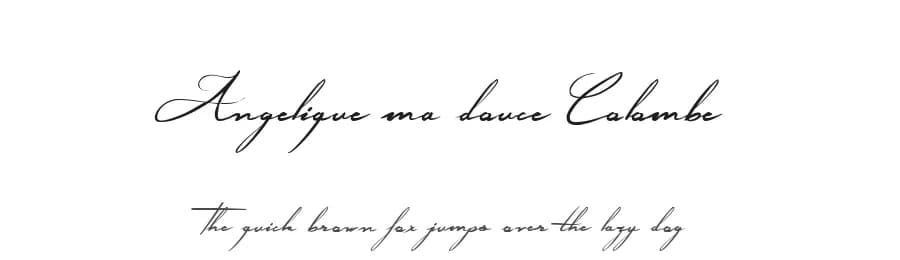 Angelique ma douce Colombe
The quick brown fox jumps over the lazy dog